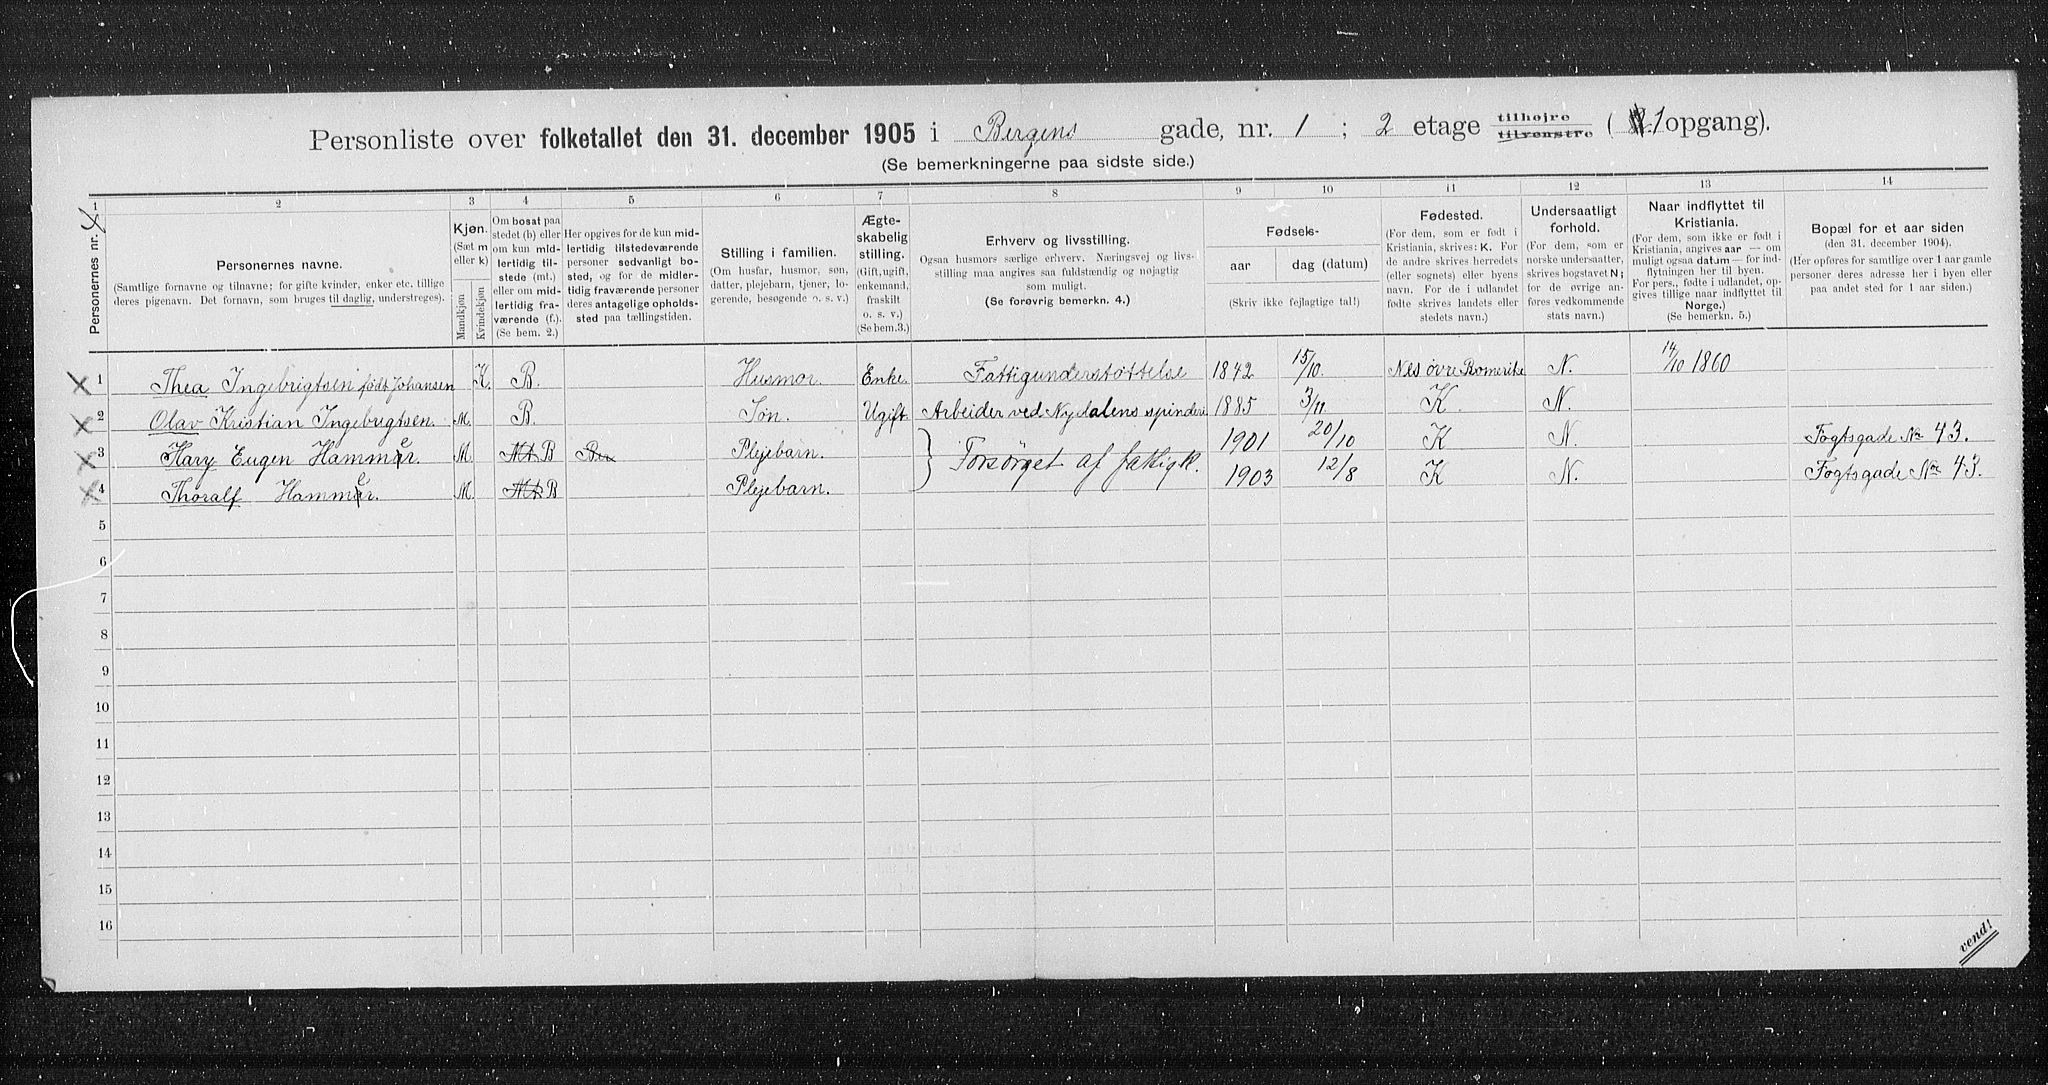 Personliste over folketallet den 31. december 1905 i Bergens gade, nr. 1 ; 2 etage tilhøjre tilvenstre ( 1 opgang).
(Se bemerkningerne paa sidste side.)
1 2 3 4 5 6 7 8 9 10 11 12 13 14
Personernes nr. 4
Personernes navne.
(Samtlige fornavne og tilnavne; for gifte kvinder, enker etc. tillige deres pigenavn. Det fornavn, som bruges til daglig, understreges).
Kjøn.
(Sæt m eller k)
Mandkjøn
Kvindekjøn
Om bosat paa stedet (b) eller om kun midlertidig tilstede (mt.) eller om midlertidig fraværende (f.). (Se bem. 2.)
Her opgives for de kun midlertidig tilstedeværende personer sedvanligt bosted, og for de midlertidig fraværende personer deres antagelige opholdssted paa tællingstiden.
Stilling i familien.
(Om husfar, husmor, søn, datter, plejebarn, tjener, logerende, besøgende o. s. v.)
Ægteskabelig stilling.
(Gift, ugift, enkemand, fraskilt o. s. v.)
(Se bem.3.)
Erhverv og livsstilling.
Ogsaa husmors særlige erhverv. Næringsvej og livsstilling maa angives saa fuldstændig og nøjagtig som muligt.
(Se forøvrig bemerkn. 4.)
Fødsels-
aar dag (datum)
(Skriv ikke fejlagtige tal!)
Fødested.
(For dem, som er født i Kristiania, skrives: K. For de andre skrives herredets (eller sognets) eller byens navn. For de i udlandet fødte skrives landets eller stedets navn.)
Undersaatligt forhold.
(For dem, som er norske undersaatter, skrives bogstavet N; for de øvrige anføres vedkommende stats navn.)
Naar indflyttet til Kristiania.
(For dem, som ikke er født i Kristiania, angives aar — om muligt ogsaa datum — for indflytningen her til byen. For pers., fødte i udlandet, opgives tillige naar indflyttet til Norge.)
(Se bemerkn. 5.)
Bopæl for et aar siden
(den 31. december 1904).
(Her opføres for samtlige over 1 aar gamle personer deres adresse her i byen eller paa andet sted for 1 aar siden.)
1 Thea Ingebrigtsen født Johansen K. B. Husmor. Enke. Fattigunderstøttelse 1842 15/10. Nes øvre Romerike N. 14/10 1860
2 Olav Kristian Ingebrigtsen. M. B. Søn. Ugift. Arbeider ved Nydalens spinderi 1885 3/11 K. N.
3 Hary Eugen Hammer. M. Mt. B Plejebarn. Forsørget af fattigk. 1901 20/10 K N. Fogtsgade No 43.
4 Thoralf Hammer. M. Mt. B Plejebarn. 1903 12/8 K N. Fogtsgade No 43.
5
6
7
8
9
10
11
12
13
14
15
16
vend!